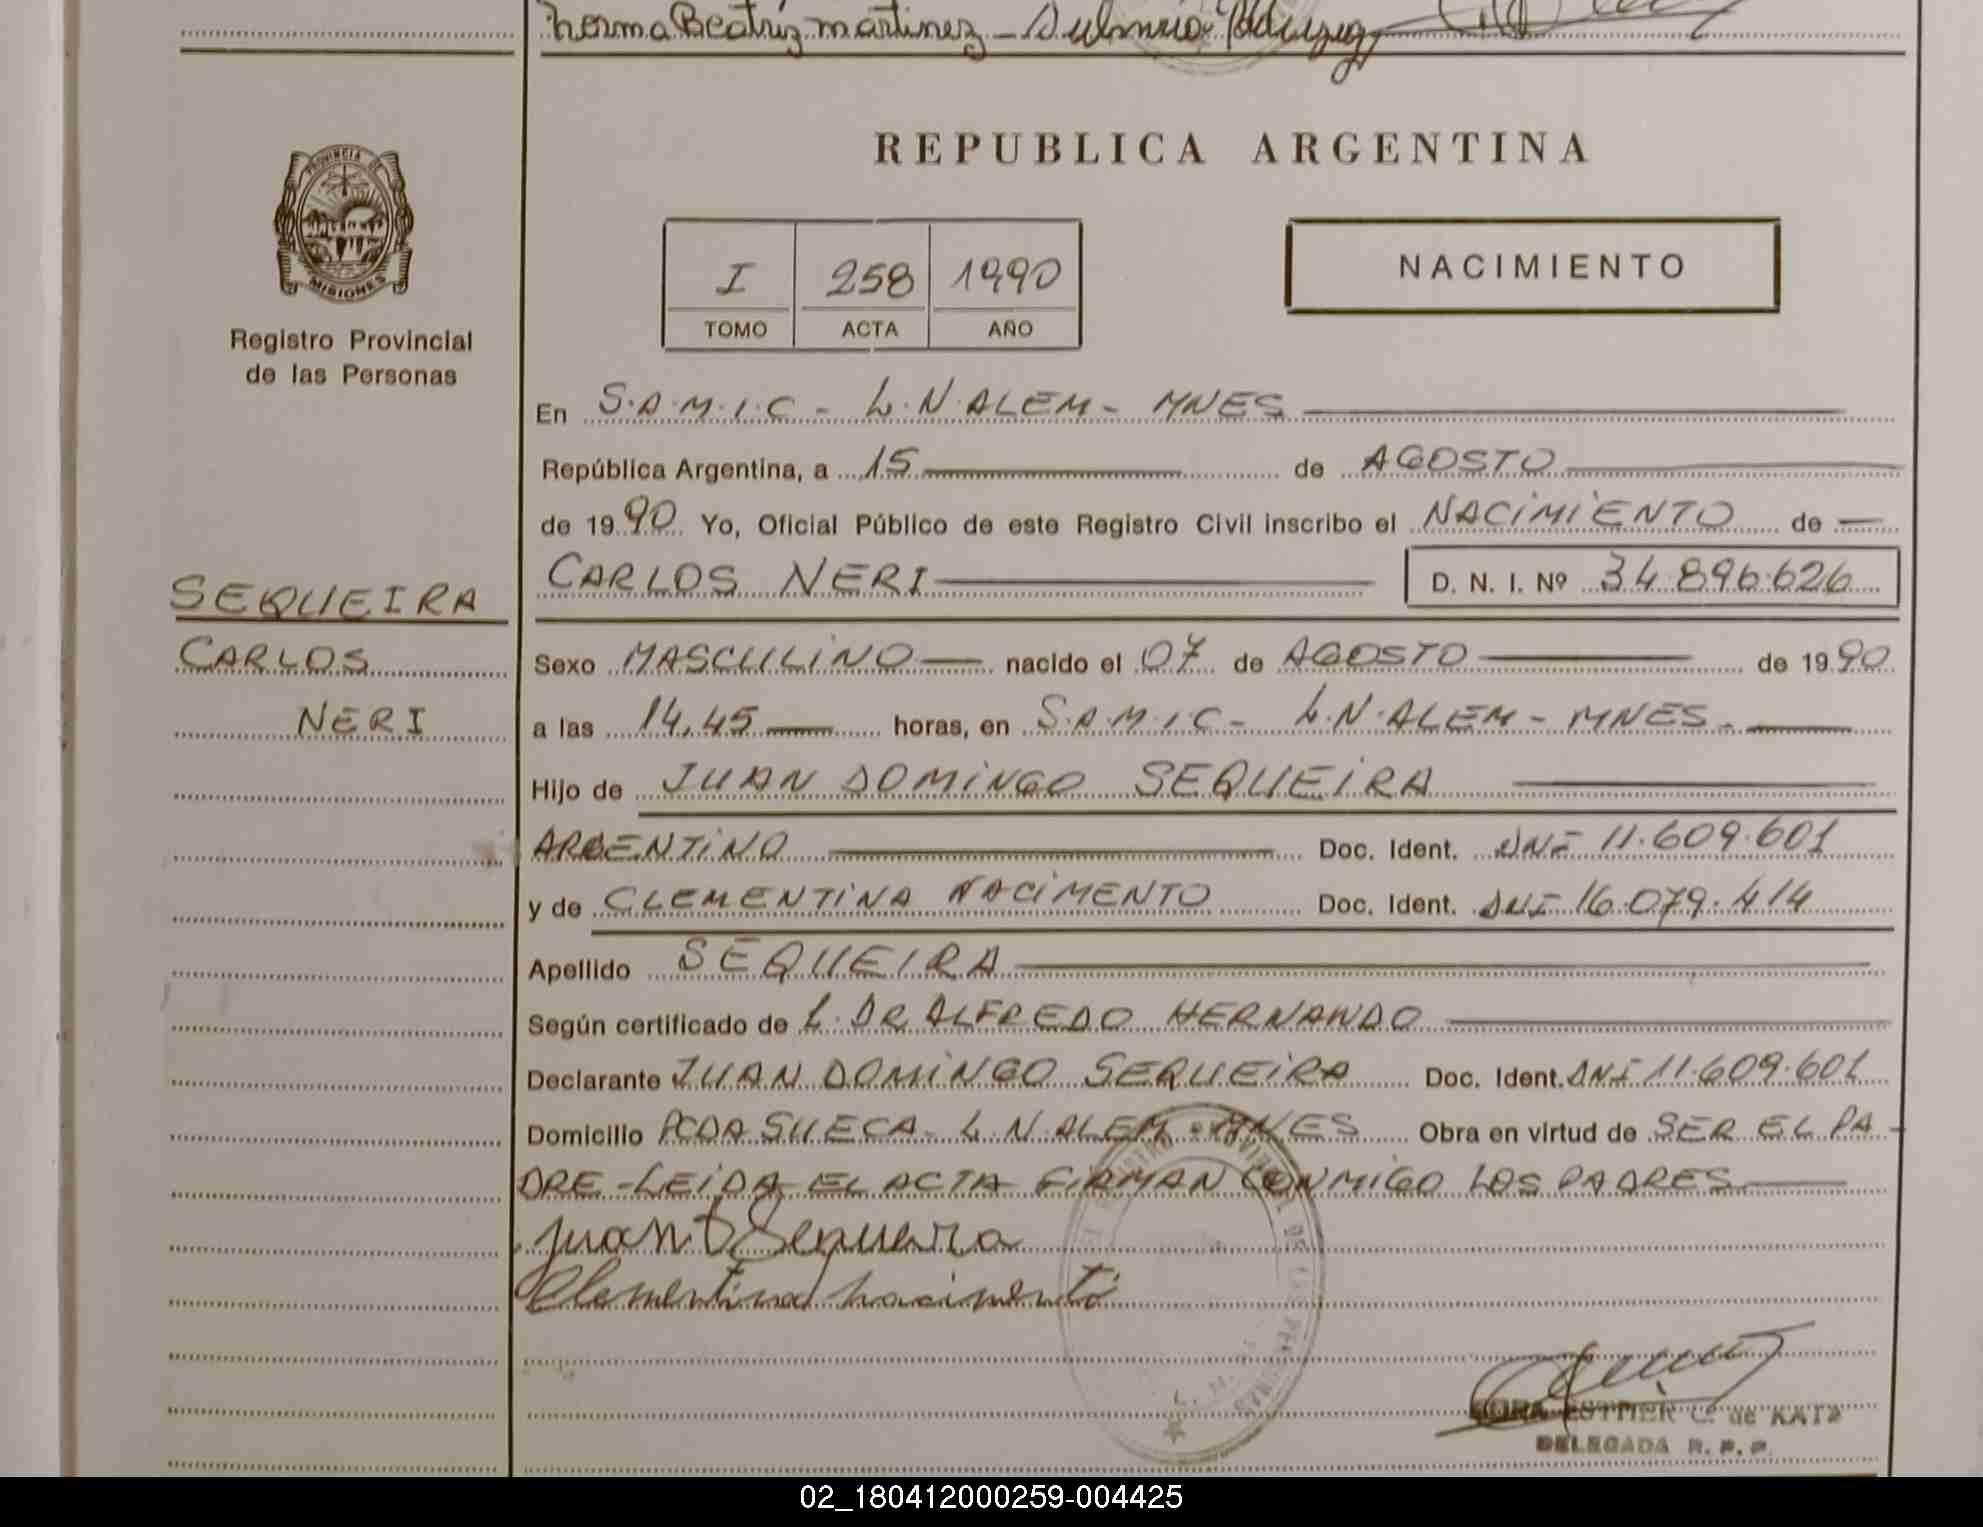 Norma Beatriz Martinez -
REPUBLICA ARGENTINA
PROVINCIA DE
MISIONES
Registro Provincial
de las Personas
I 258 1990
TOMO ACTA AÑO
NACIMIENTO
En S.A.M.I.C - L.N.ALEM - MNES
República Argentina, a 15 de AGOSTO
de 1990 Yo, Oficial Público de este Registro Civil inscribo el NACIMIENTO de
CARLOS NERI D. N. I. Nº 34.896.626
SEQUEIRA
CARLOS
NERI
Sexo MASCULINO nacido el 07 de AGOSTO de 1990
a las 14,45 horas, en S.A.M.I.C - L.N.ALEM - MNES -
Hijo de JUAN DOMINGO SEQUEIRA
ARGENTINO Doc. Ident. DNI 11.609.601
y de CLEMENTINA NACIMENTO Doc. Ident. DNI 16.079.414
Apellido SEQUEIRA
Según certificado de L. DR ALFREDO HERNANDO
Declarante JUAN DOMINGO SEQUEIRA Doc. Ident. DNI 11.609.601
Domicilio PCDA SUECA - L.N.ALEM - MNES Obra en virtud de SER EL PA-
DRE - LEIDA EL ACTA FIRMAN CONMIGO LOS PADRES
Juan D Sequeira
Clementina nacimento
ESTHER C. de KATZ
DELEGADA R. P. P.
02_180412000259-004425